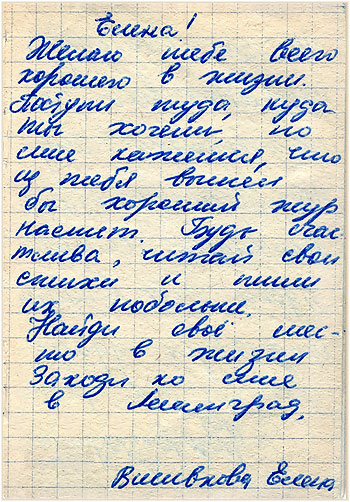 Елена!
Желаю тебе всего
хорошего в жизни.
Поступи туда, куда
ты хочешь, но
мне кажется, что
из тебя вышел
бы хороший жур
налист. Будь счас-
тлива, читай свои
стихи и пиши
их побольше.
Найди своё мес-
то в жизни
Заходи ко мне
в Ленинград,
Елена